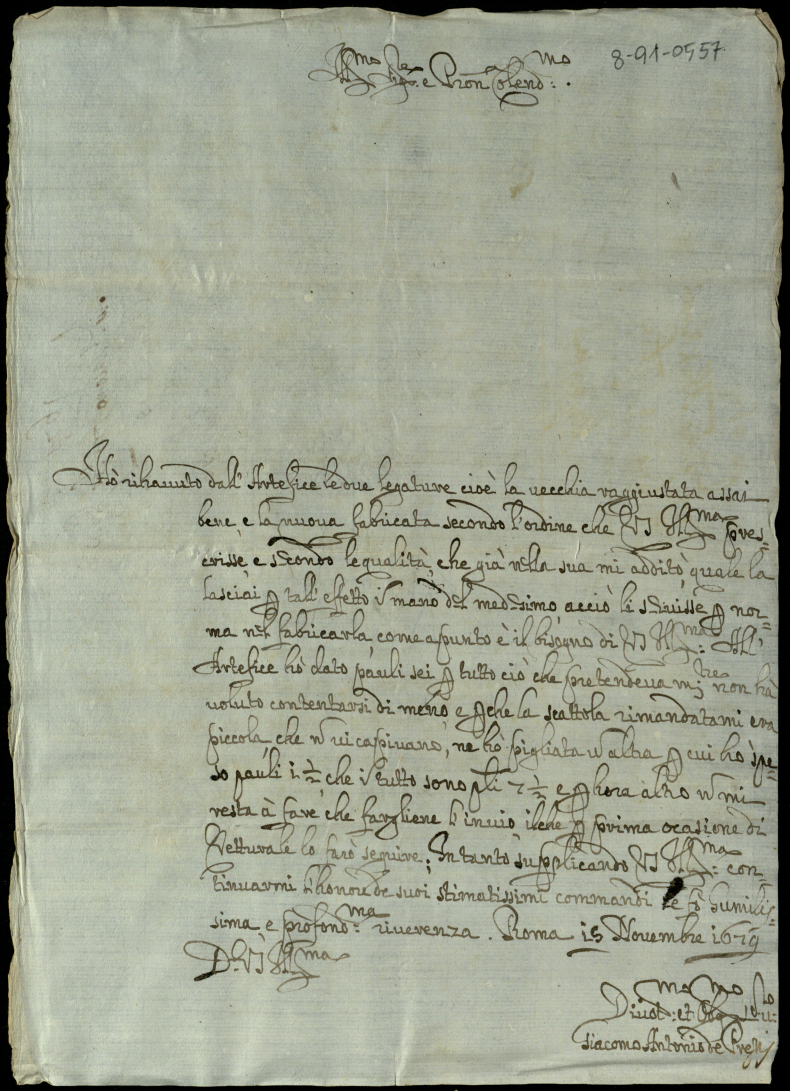 8-91-0557
Ill.mo Sig.re e Pron Colend.mo:
Hò rihauuto dall' Artefice le due legature cioè la uecchia raggiustata assai
bene e la nuoua fabricata secondo l'ordine che VS Ill.ma pres=
crisse e secondo le qualità, che già nella sua mi additò, quale la
lasciai p tall' effetto in mano del medesimo acciò li seruisse p nor=
ma nel fabricarla come apunto è il bisogno di VS Ill.ma: All'
Artefice hò dato pauli sei p tutto ciò che pretendeua non hà
uoluto contentarsi di meno e pche la scattola rimandatami era
piccola, che n ui capiuano, ne hò pigliata un altra p cui hò spe=
so pauli 1 ½, che in tutto sono pli 7 ½ e p hora altro n mi
resta à fare che fargliene l'inuio, ilche p prima ocasione di
Vetturale lo farò seguire. In tanto supplicando VS Ill.ma: con=
tinuarmi l'honore de suoi stimatissimi commandi le fò humilis=
sima e profond.ma riuerenza. Roma 15 Nouembre 1679
D. VS Ill.ma
Diuot.mo: et Obg.mo Seru.:
Giacomo Antonio de